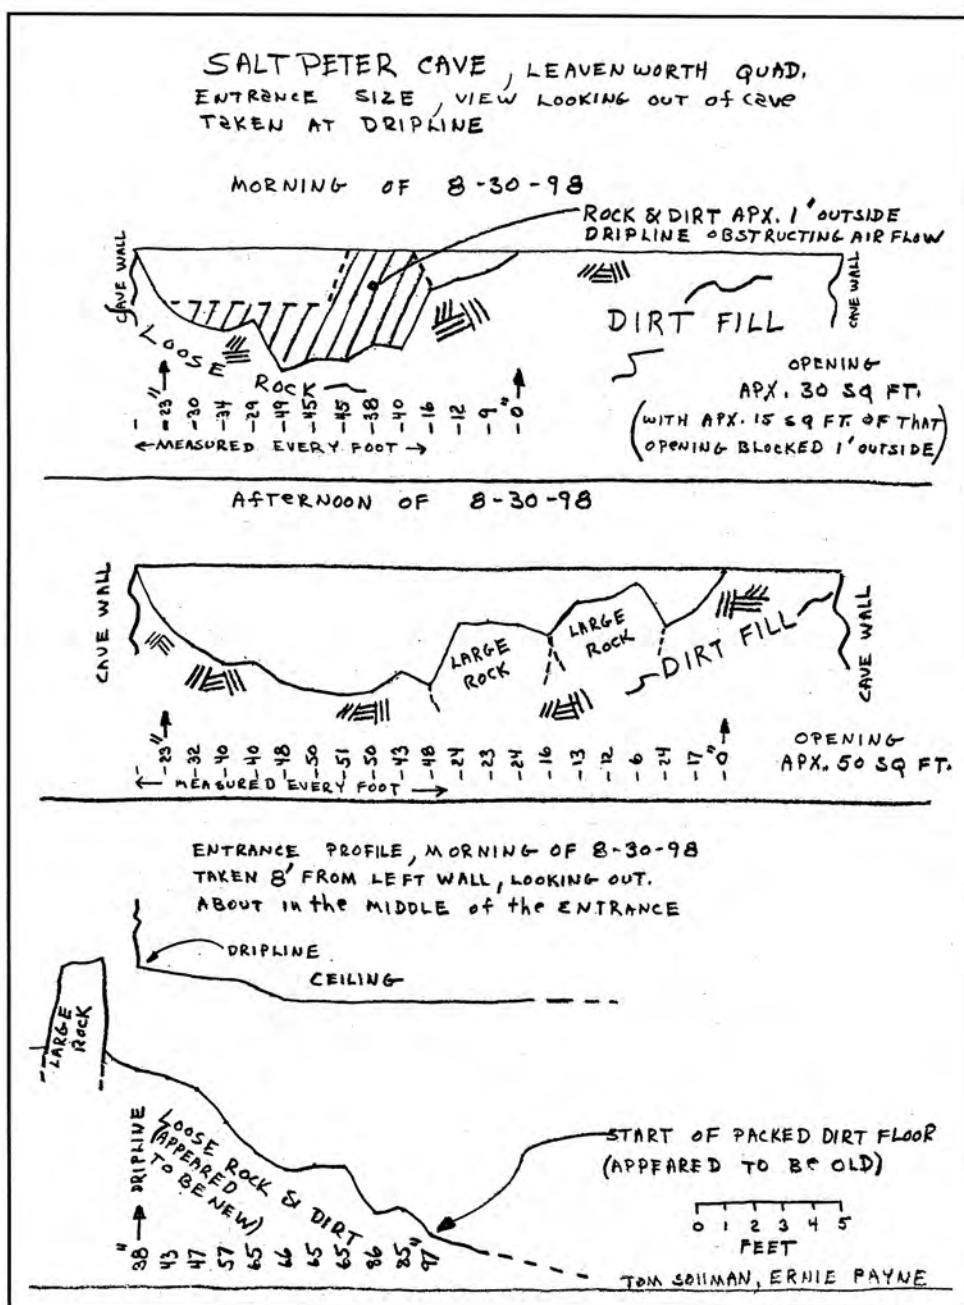 SALTPETER CAVE, LEAVENWORTH QUAD.
ENTRANCE SIZE, VIEW LOOKING OUT of cave
TAKEN AT DRIPLINE
MORNING OF 8-30-98
ROCK & DIRT APX. 1' OUTSIDE
DRIPLINE OBSTRUCTING AIR FLOW
CAVE WALL
LOOSE
ROCK
DIRT FILL
CAVE WALL
OPENING
APX. 30 SQ FT.
(WITH APX. 15 SQ FT. OF THAT
OPENING BLOCKED 1' OUTSIDE)
-23" -30 -34 -29 -49 -45 -45 -38 -40 -16 -12 -9 -0"
← MEASURED EVERY FOOT →
AFTERNOON OF 8-30-98
CAVE WALL
LARGE
ROCK
LARGE
ROCK
DIRT FILL
CAVE WALL
-23" -32 -40 -40 -48 -50 -51 -50 -43 -48 -24 -23 -24 -16 -13 -12 -6 -24 -17 -0"
← MEASURED EVERY FOOT →
OPENING
APX. 50 SQ FT.
ENTRANCE PROFILE, MORNING OF 8-30-98
TAKEN 8' FROM LEFT WALL, LOOKING OUT.
ABOUT in the MIDDLE of the ENTRANCE
DRIPLINE
CEILING
LARGE
ROCK
DRIPLINE
LOOSE ROCK & DIRT
(APPEARED
TO BE NEW)
START OF PACKED DIRT FLOOR
(APPEARED TO BE OLD)
38" 43 47 57 65 66 65 65 86 85 97"
0 1 2 3 4 5
FEET
TOM SOLLMAN, ERNIE PAYNE